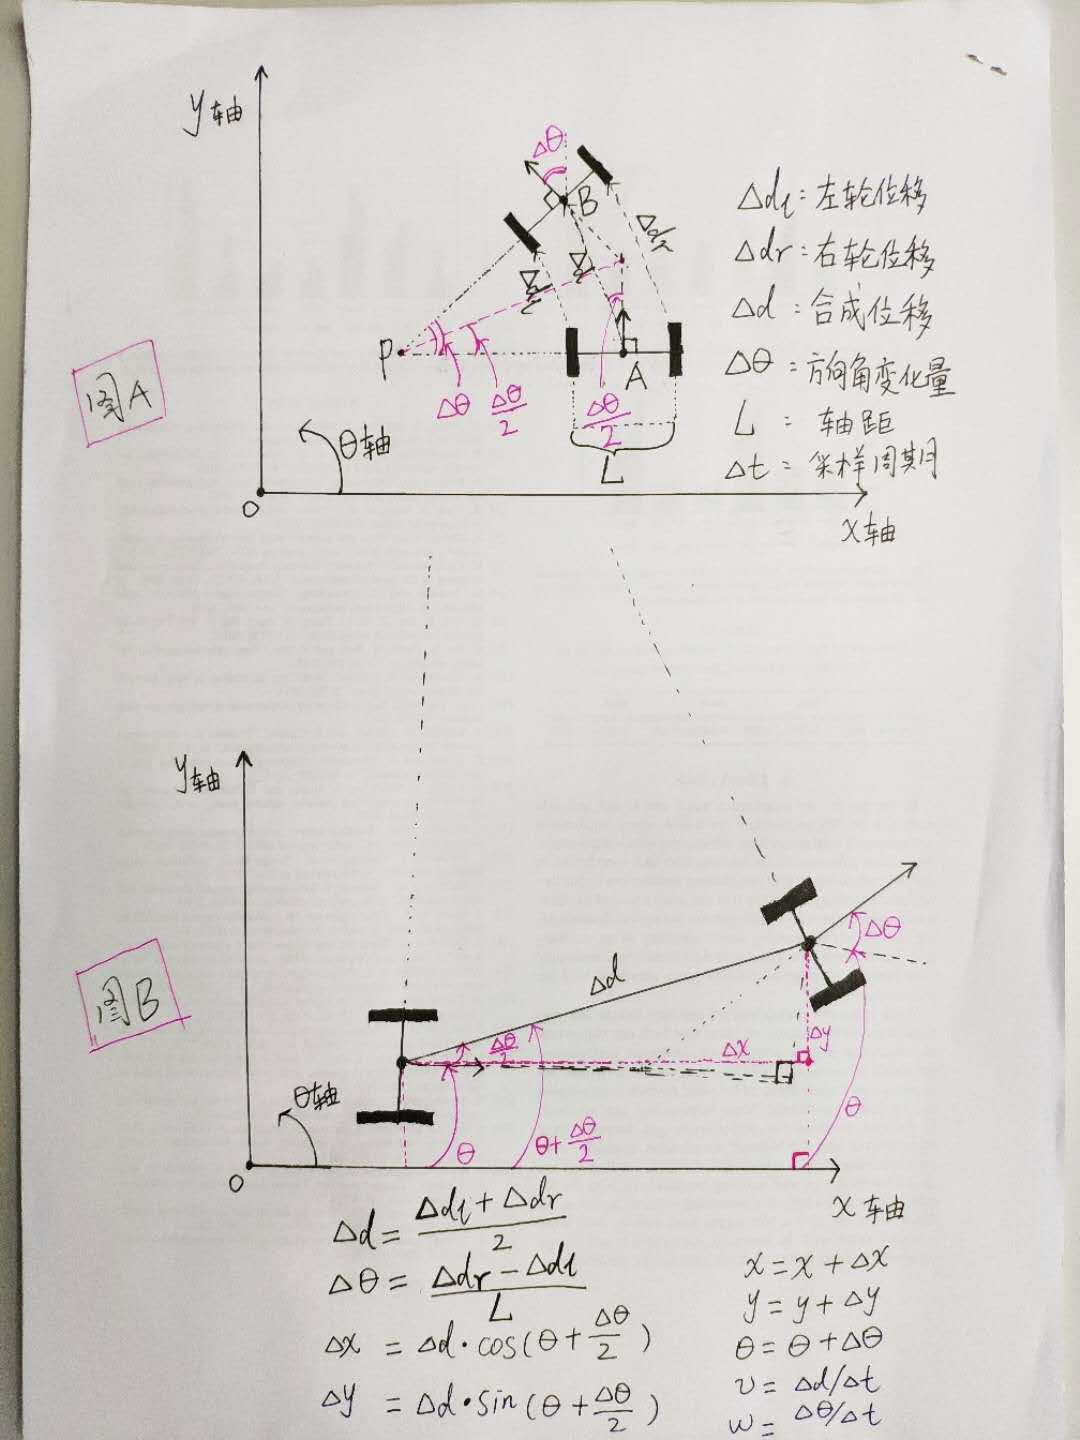 y轴
Δθ
B
Δdr
Δdl
Δd
P
A
Δθ
Δθ/2
Δθ/2
L
θ轴
O
x轴
图A
Δdl:左轮位移
Δdr:右轮位移
Δd:合成位移
Δθ:方向角变化量
L:轴距
Δt:采样周期
y轴
Δθ
Δd
Δy
Δθ/2
Δx
图B
θ轴
θ
θ+Δθ/2
θ
O
x轴
Δd=(Δdl+Δdr)/2
Δθ=(Δdr-Δdl)/L
Δx=Δd·cos(θ+Δθ/2)
Δy=Δd·sin(θ+Δθ/2)
x=x+Δx
y=y+Δy
θ=θ+Δθ
v=Δd/Δt
w=Δθ/Δt